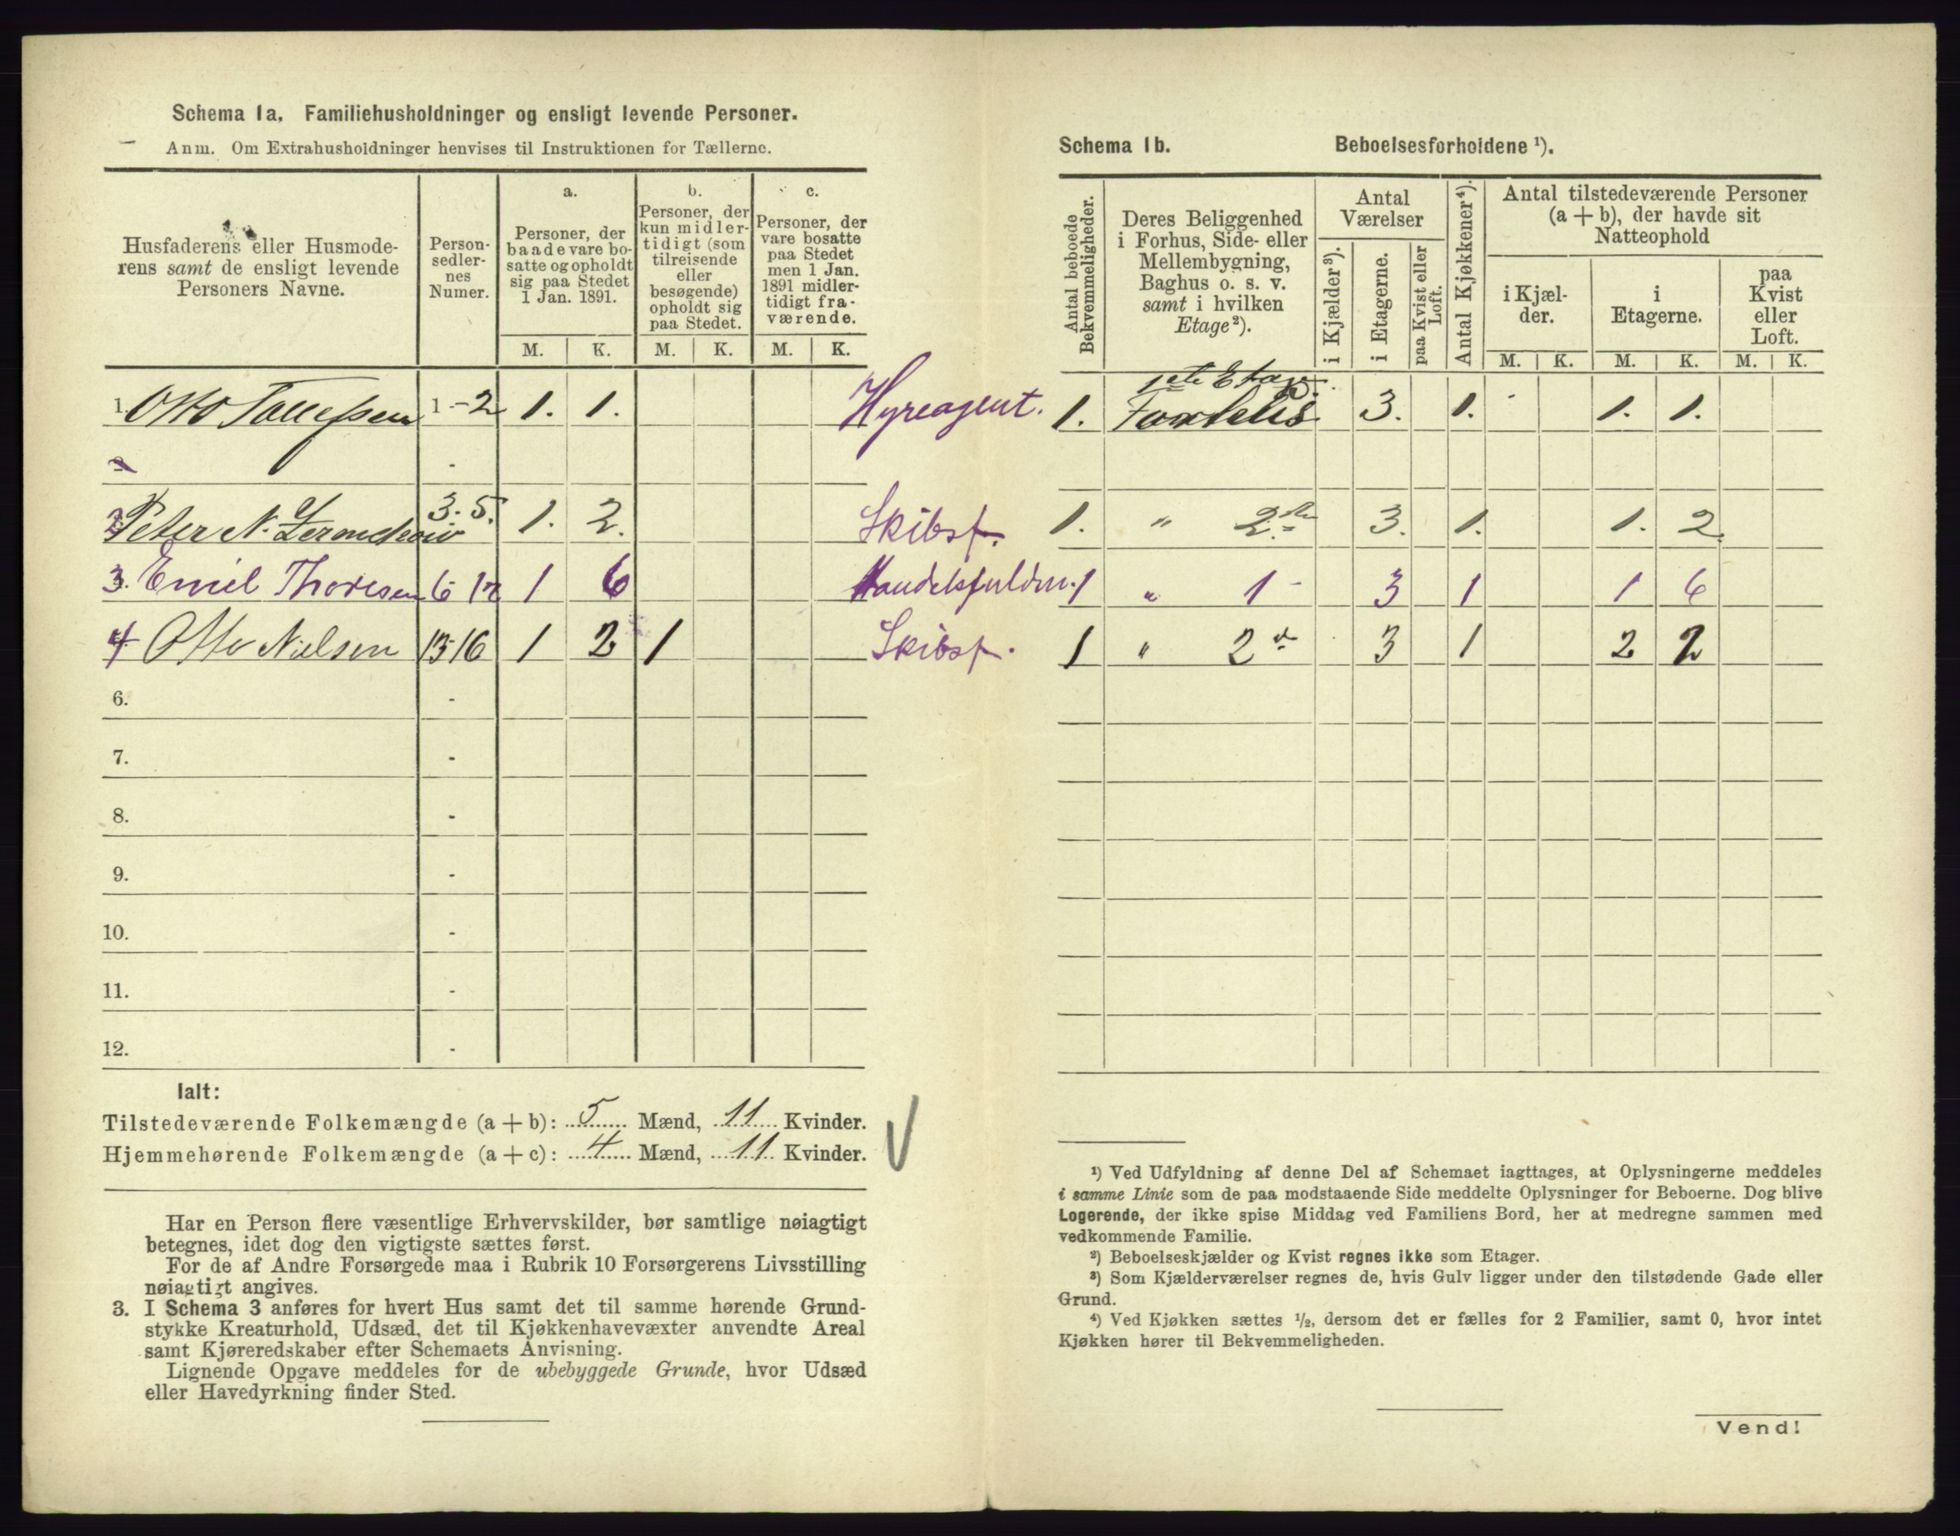 Schema 1a. Familiehusholdninger og ensligt levende Personer.
Anm. Om Extrahusholdninger henvises til Instruktionen for Tællerne.
Husfaderens eller Husmode-
rens samt de ensligt levende
Personers Navne.
Person-
sedler-
nes
Numer.
a.
Personer, der
baade vare bo-
satte og opholdt
sig paa Stedet
1 Jan. 1891.
b.
Personer, der
kun midler-
tidigt (som
tilreisende
eller
besøgende)
opholdt sig
paa Stedet.
c.
Personer, der
vare bosatte
paa Stedet
men 1 Jan.
1891 midler-
tidigt fra-
værende.
M. K. M. K. M. K.
1. Otto Tallefsen 1-2 1. 1. Hyreagent.
2 Peter N. 3-5. 1. 2. Skibsf.
3. Emil Thoresen 6-12 1 6 Handelsfuldm.
4 Otto Nielsen 13-16 1 2 1 Skibsf.
6. -
7. -
8. -
9. -
10. -
11. -
12. -
Ialt:
Tilstedeværende Folkemængde (a + b): 5 Mænd, 11 Kvinder.
Hjemmehørende Folkemængde (a + c): 4 Mænd, 11 Kvinder.
Har en Person flere væsentlige Erhvervskilder, bør samtlige nøiagtigt
betegnes, idet dog den vigtigste sættes først.
For de af Andre Forsørgede maa i Rubrik 10 Forsørgerens Livsstilling
nøiagtigt angives.
3. I Schema 3 anføres for hvert Hus samt det til samme hørende Grund-
stykke Kreaturhold, Udsæd, det til Kjøkkenhavevæxter anvendte Areal
samt Kjøreredskaber efter Schemaets Anvisning.
Lignende Opgave meddeles for de ubebyggede Grunde, hvor Udsæd
eller Havedyrkning finder Sted.
Schema 1b. Beboelsesforholdene ¹).
Antal beboede
Bekvemmeligheder.
Deres Beliggenhed
i Forhus, Side- eller
Mellembygning,
Baghus o. s. v.
samt i hvilken
Etage²).
Antal
Værelser
i Kjælder³).
i Etagerne.
paa Kvist eller
Loft.
Antal Kjøkkener⁴).
Antal tilstedeværende Personer
(a + b), der havde sit
Natteophold
i Kjæl-
der.
i
Etagerne.
paa
Kvist
eller
Loft.
M. K. M. K. M. K.
1ste Etage
1. 3. 1. 1. 1.
1. " 2. 3. 1. 1. 2.
1 " 1 - 3 1 1 6
1 " 2 3 1 2 2
¹) Ved Udfyldning af denne Del af Schemaet iagttages, at Oplysningerne meddeles
i samme Linie som de paa modstaaende Side meddelte Oplysninger for Beboerne. Dog blive
Logerende, der ikke spise Middag ved Familiens Bord, her at medregne sammen med
vedkommende Familie.
²) Beboelseskjælder og Kvist regnes ikke som Etager.
³) Som Kjælderværelser regnes de, hvis Gulv ligger under den tilstødende Gade eller
Grund.
⁴) Ved Kjøkken sættes ½, dersom det er fælles for 2 Familier, samt 0, hvor intet
Kjøkken hører til Bekvemmeligheden.
Vend!